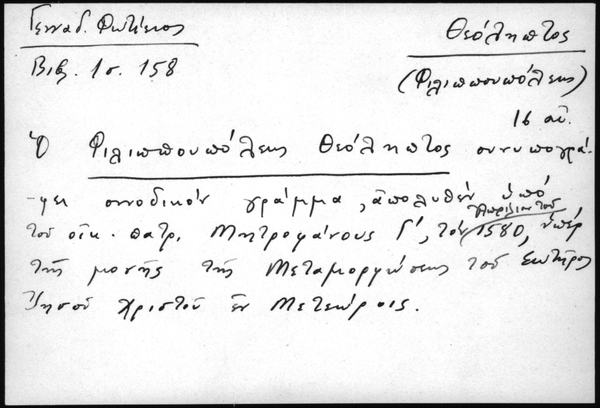 Γενναδ. Φωτίειος
Βιβ. 1 σ. 158
Θεόληπτος
(Φιλιππουπόλεως)
16 αἰ.
Ὁ Φιλιππουπόλεως Θεόληπτος συνυπογρά-
φει συνοδικόν γράμμα, ἀπολυθέν ὑπό
τοῦ οἰκ. πατρ. Μητροφάνους Γ΄, τοῦ 1580, ὑπέρ
τῆς μονῆς τῆς Μεταμορφώσεως τοῦ Σωτῆρος
Ἰησοῦ Χριστοῦ ἐν Μετεώροις.